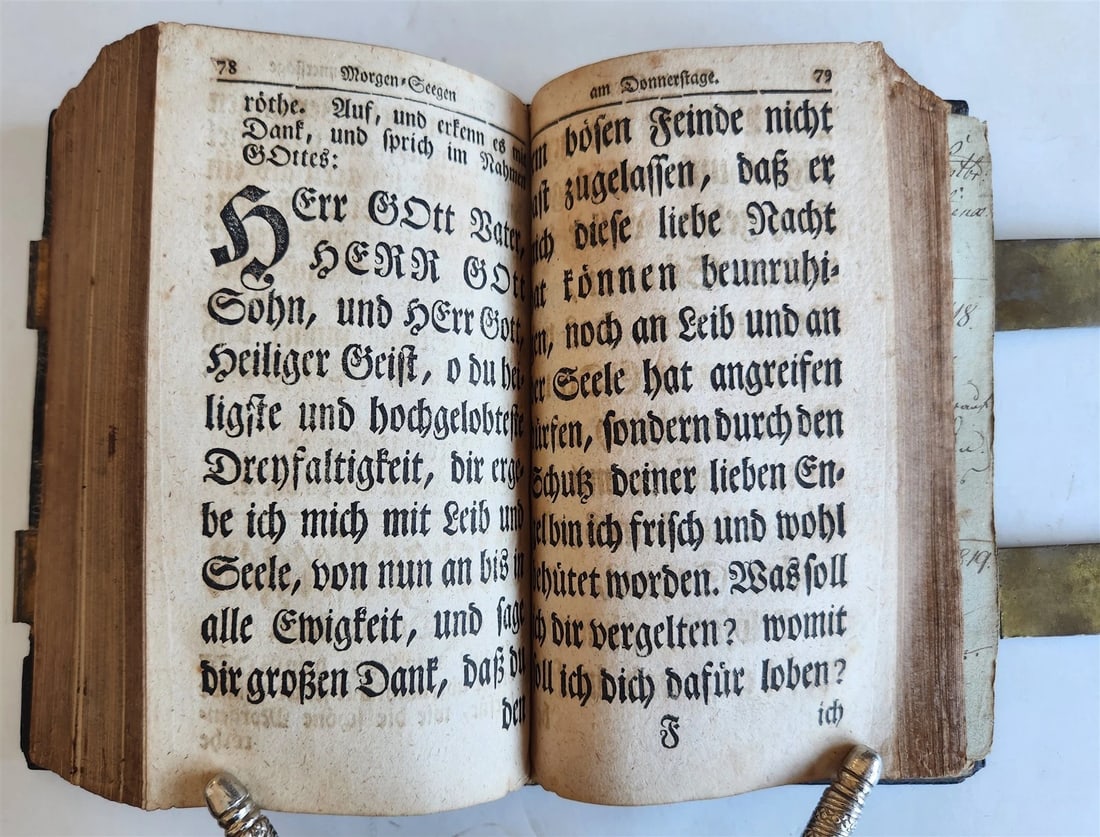 78 Morgen-Seegen
röthe. Auf, und erkenn es mit
Dank, und sprich im Nahmen
GOttes:
HErr GOtt Vater,
HERR GOtt
Sohn, und HErr Gott,
Heiliger Geist, o du hei-
ligste und hochgelobteste
Dreyfaltigkeit, dir erge-
be ich mich mit Leib und
Seele, von nun an bis in
alle Ewigkeit, und sage
dir großen Dank, daß du
den
am Donnerstage. 79
bösen Feinde nicht
hast zugelassen, daß er
mich diese liebe Nacht
hat können beunruhi-
gen, noch an Leib und an
der Seele hat angreifen
dürfen, sondern durch den
Schutz deiner lieben En-
gel bin ich frisch und wohl
behütet worden. Was soll
ich dir vergelten? womit
soll ich dich dafür loben?
F ich